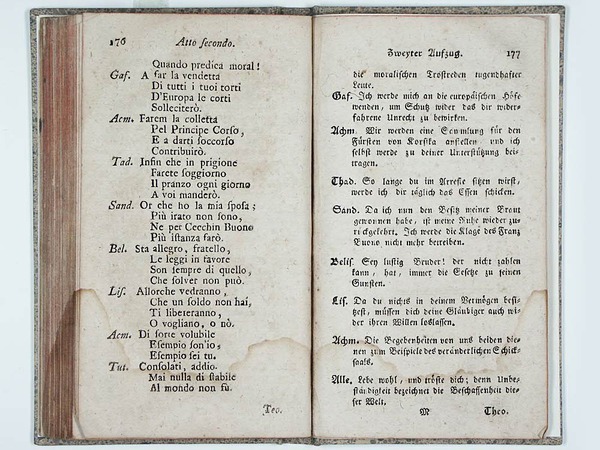 176 Atto secondo.
Quando predica moral!
Gaf. A far la vendetta
Di tutti i tuoi torti
D'Europa le corti
Solleciterò.
Acm. Farem la colletta
Pel Principe Corso,
E a darti soccorso
Contribuirò.
Tad. Infin che in prigione
Farete soggiorno
Il pranzo ogni giorno
A voi manderò.
Sand. Or che ho la mia sposa;
Più irato non sono,
Ne per Cecchin Buono
Più istanza farò.
Bel. Sta allegro, fratello,
Le leggi in favore
Son sempre di quello,
Che solver non può.
Lis. Allorche vedranno,
Che un soldo non hai,
Ti libereranno,
O vogliano, o nò.
Acm. Di sorte volubile
Esempio son'io,
Esempio sei tu.
Tut. Consolati, addio.
Mai nulla di stabile
Al mondo non fù.
Teo.
Zweyter Aufzug. 177
die moralischen Trostreden tugendhafter
Leute.
Gaf. Ich werde mich an die europäischen Höfe
wenden, um Schutz wider das dir wider-
fahrene Unrecht zu bewirken.
Achm. Wir werden eine Sammlung für den
Fürsten von Korsika anstellen und ich
selbst werde zu deiner Unterstützung bei-
tragen.
Thad. So lange du im Arreste sitzen wirst,
werde ich dir täglich das Essen schicken.
Sand. Da ich nun den Besitz meiner Braut
gewonnen habe, ist meine Ruhe wieder zu-
rückgekehrt. Ich werde die Klage des Franz
Buono nicht mehr betreiben.
Belis. Sey lustig Bruder! der nicht zahlen
kann, hat, immer die Gesetze zu seinen
Gunsten.
Lis. Da du nichts in deinem Vermögen besi-
tzest, müssen dich deine Gläubiger auch wi-
der ihren Willen loslassen.
Achm. Die Begebenheiten von uns beiden die-
nen zum Beispiele des veränderlichen Schick-
saals.
Alle. Lebe wohl, und tröste dich; denn Unbe-
ständigkeit bezeichnet die Beschaffenheit die-
ser Welt.
M Theo.